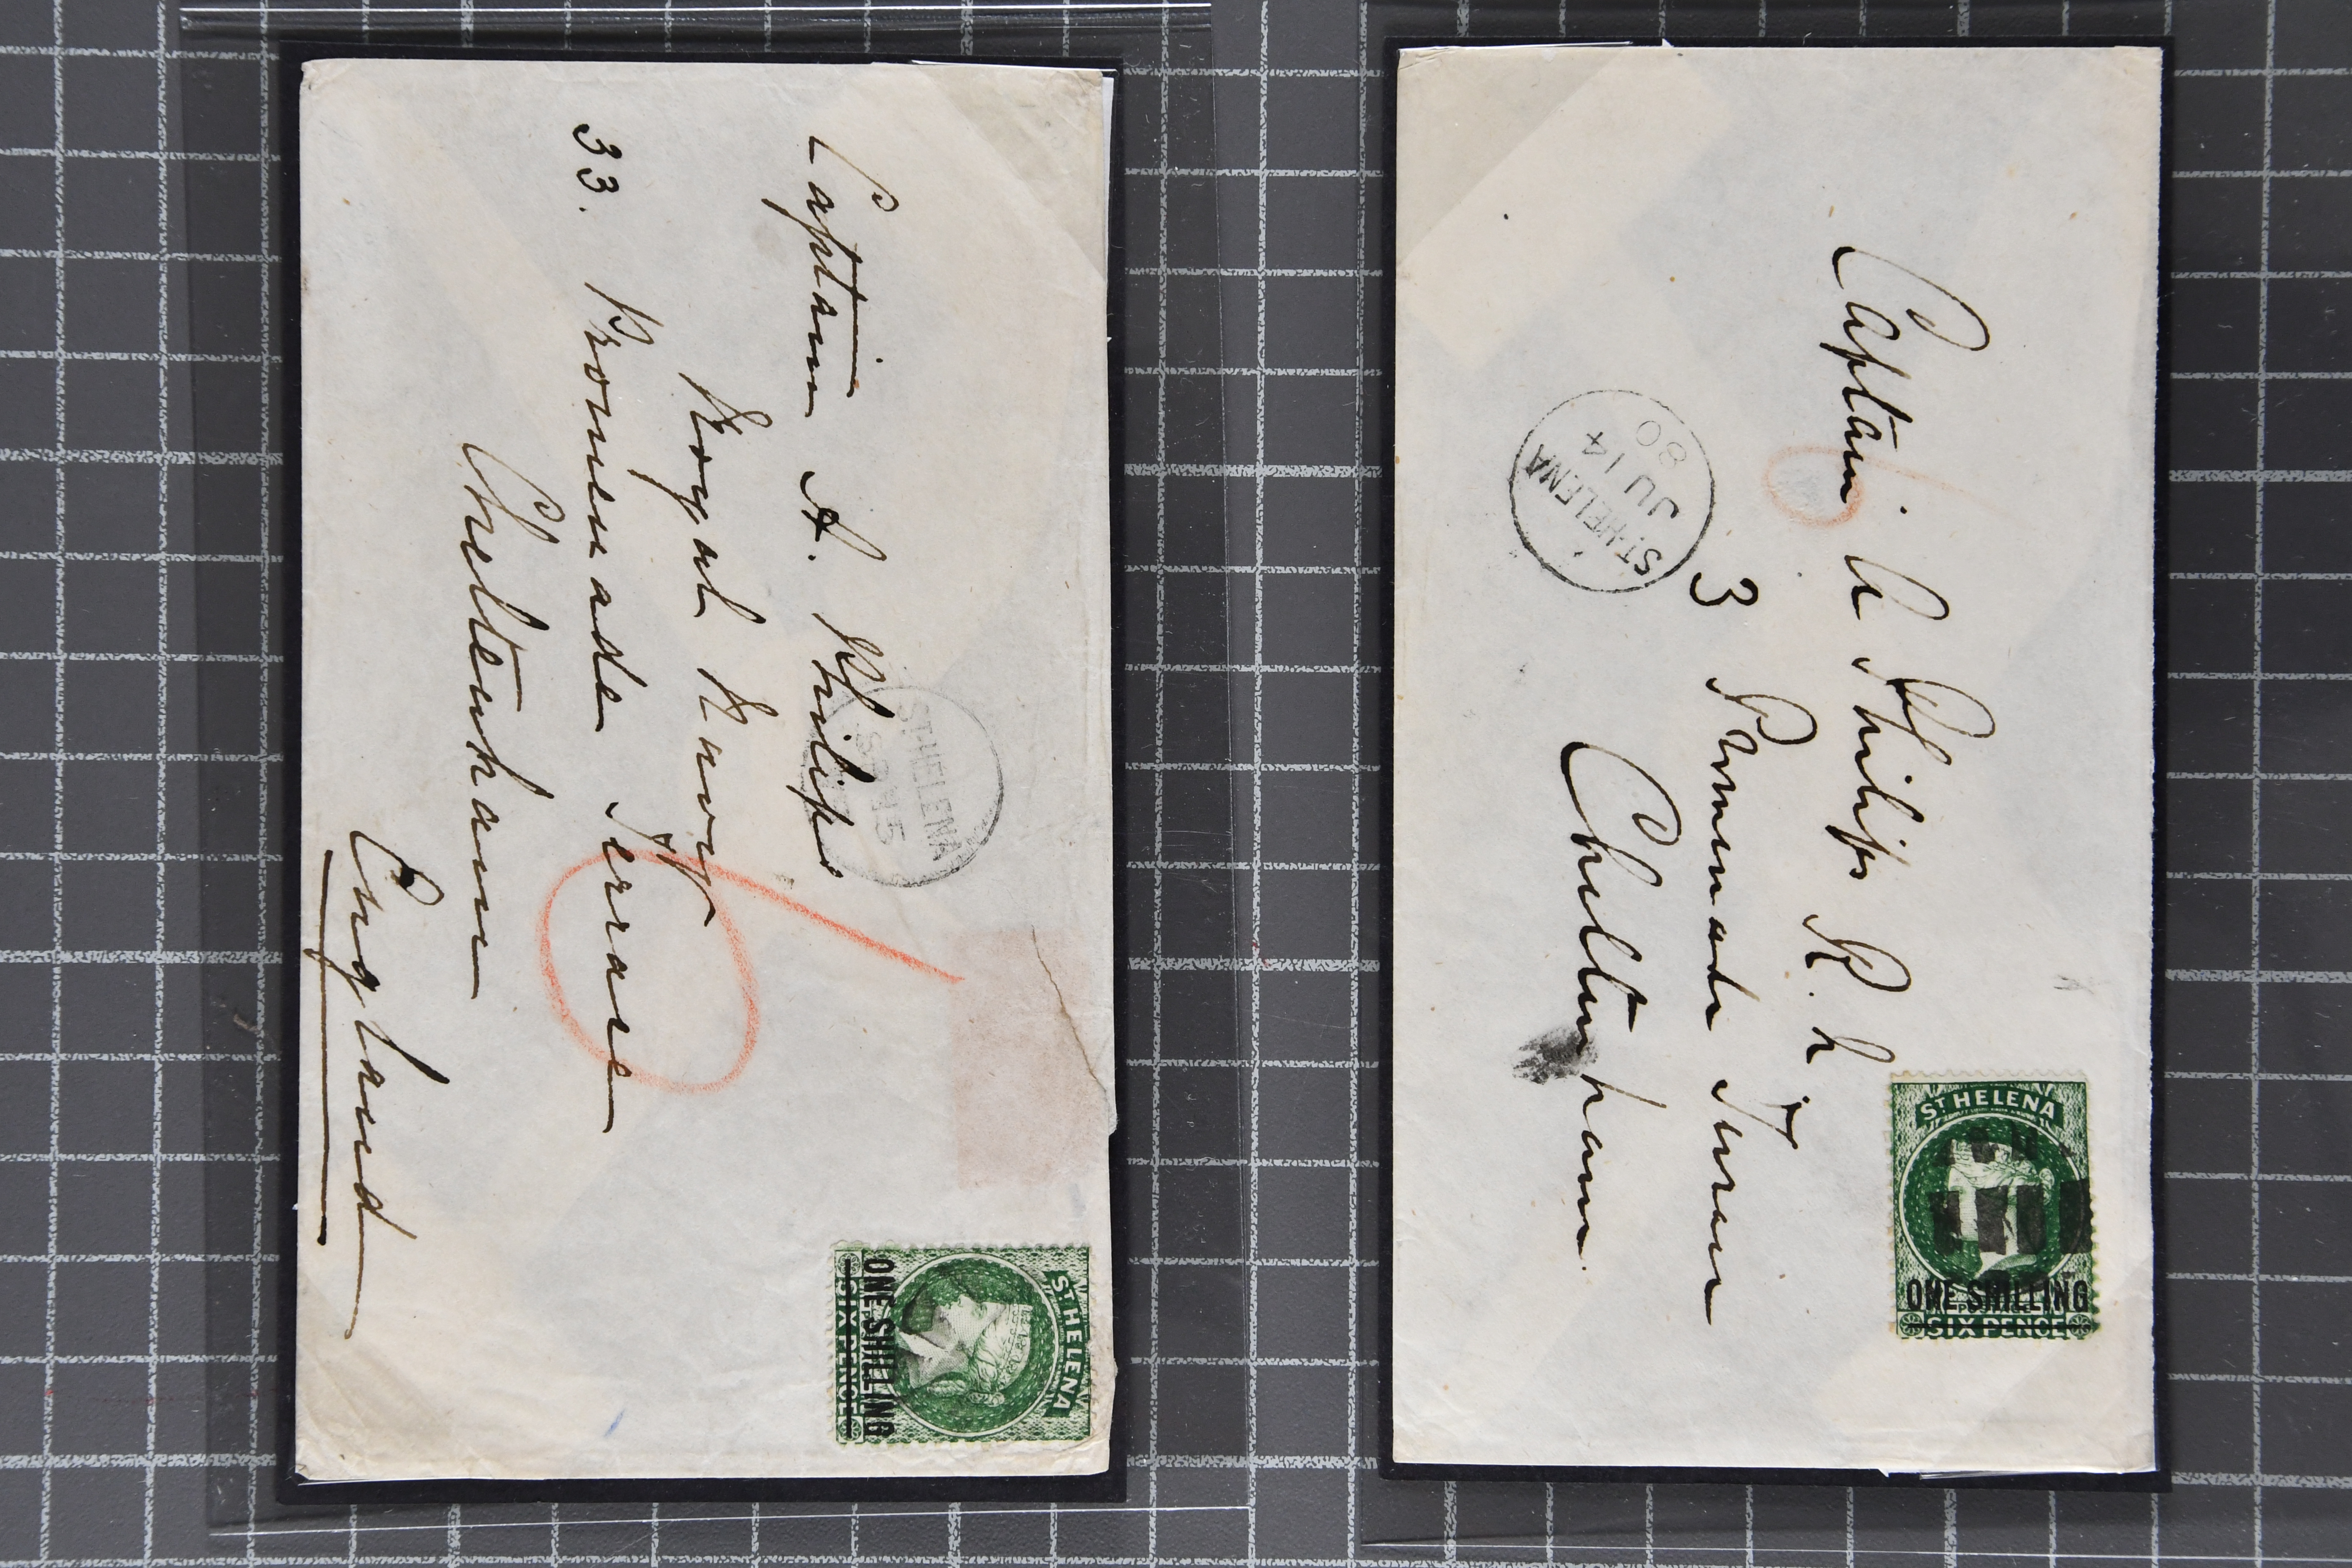 Captain A. Philips
Royal Navy
33. Promenade Terrace
Cheltenham
England
ST HELENA
ST HELENA
ONE SHILLING
SIX PENCE
Captain A Philips R. N
3 Promenade Terrace
Cheltenham
ST HELENA
JU 14
80
ST HELENA
ONE SHILLING
SIX PENCE